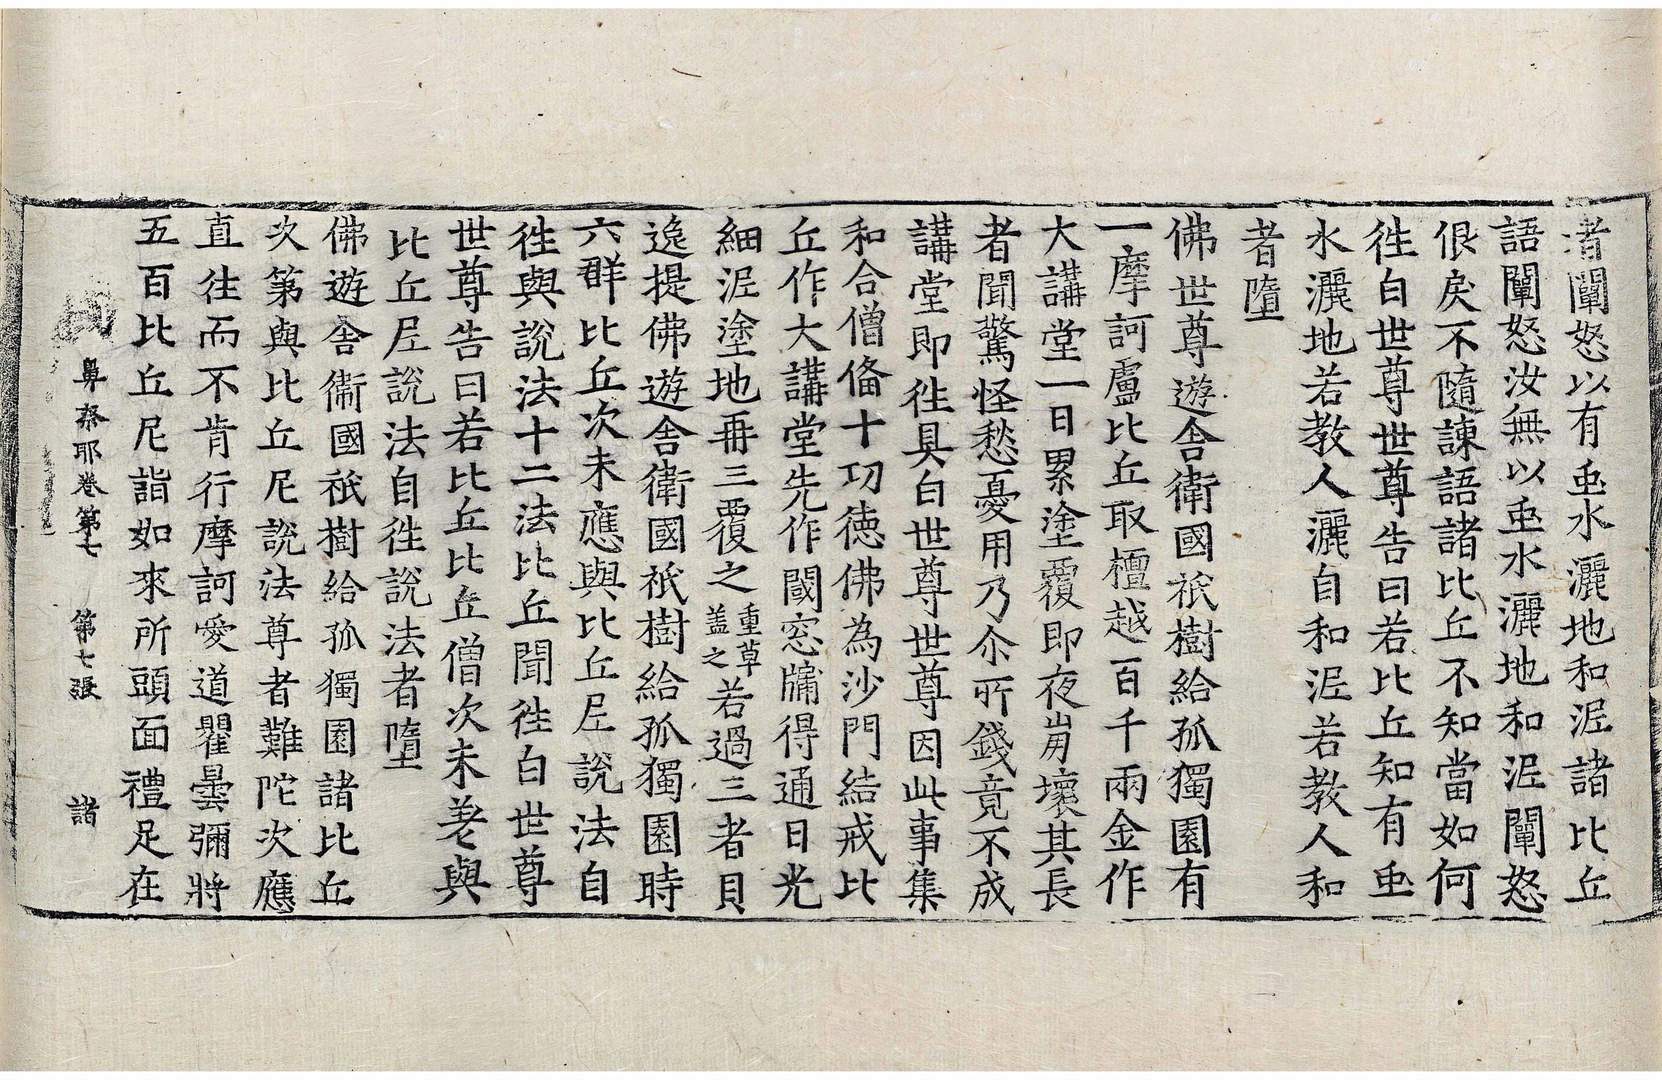 者闡怒以有䖝水灑地和泥諸比丘
語闡怒汝無以䖝水灑地和泥闡怒
佷戾不隨諫語諸比丘不知當如何
徃白世尊世尊告曰若比丘知有䖝
水灑地若教人灑自和泥若教人和
者墮
佛世尊遊舍衛國祇樹給孤獨園有
一摩訶盧比丘取檀越百千兩金作
大講堂一日累塗覆即夜崩壞其長
者聞驚怪愁憂用乃尒所錢竟不成
講堂即徃具白世尊世尊因此事集
和合僧俻十功徳佛為沙門結戒比
丘作大講堂先作閾窓牖得通日光
細泥塗地再三覆之重草盖之若過三者貝
逸提佛遊舍衛國祇樹給孤獨園時
六群比丘次未應與比丘尼說法自
徃與說法十二法比丘聞徃白世尊
世尊告曰若比丘比丘僧次未差與
比丘尼說法自徃說法者墮
佛遊舍衛國祇樹給孤獨園諸比丘
次第與比丘尼說法尊者難陀次應
直往而不肯行摩訶愛道瞿曇彌將
五百比丘尼詣如來所頭面禮足在
鼻奈耶卷第七 第十七張 諸